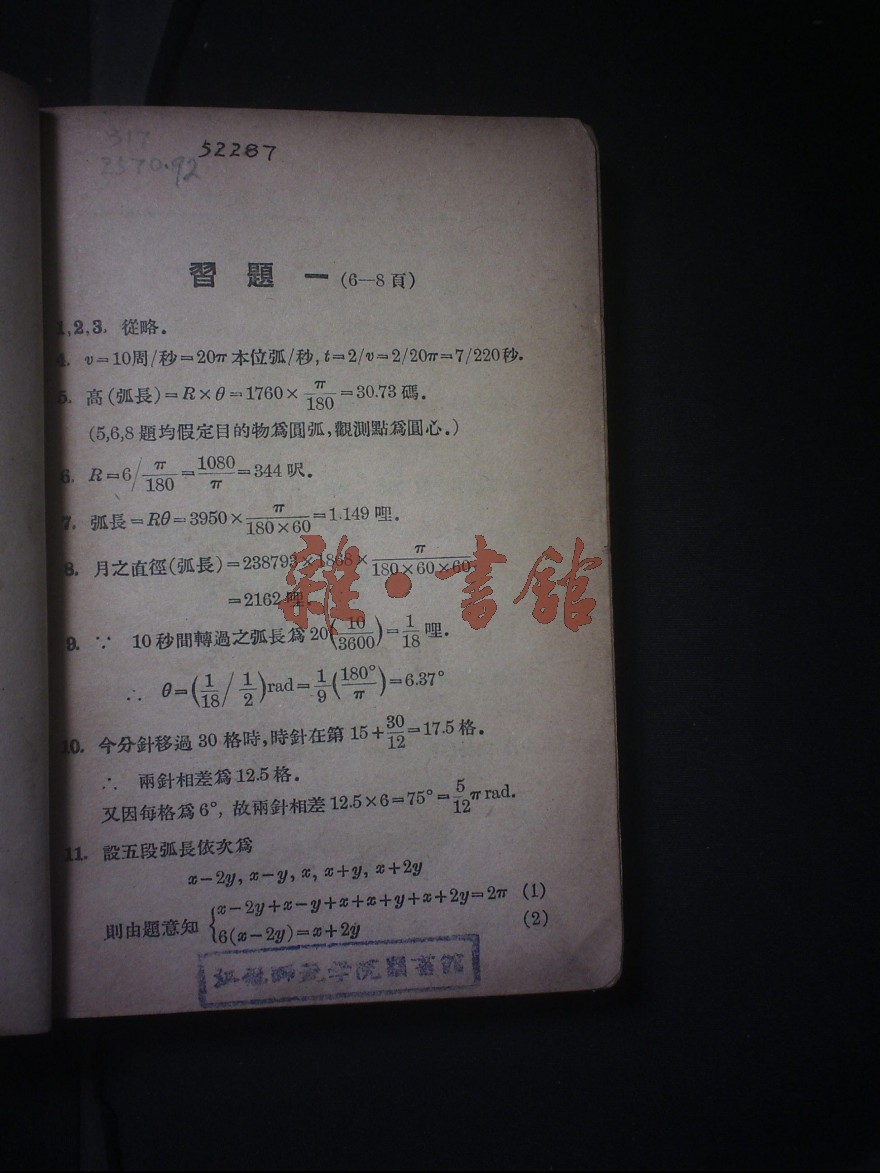 52287
習題一(6—8頁)
1,2,3. 從略。
4. v=10周/秒=20π本位弧/秒, t=2/v=2/20π=7/220秒.
5. 高(弧長)=R×θ=1760×π/180=30.73碼。
(5,6,8題均假定目的物爲圓弧,觀測點爲圓心。)
6. R=6/(π/180)=1080/π=344呎。
7. 弧長=Rθ=3950×π/(180×60)=1.149哩。
8. 月之直徑(弧長)=238793×1868×π/(180×60×60)
=2162哩。
雜·書館
9. ∵ 10秒間轉過之弧長爲20(10/3600)=1/18哩.
∴ θ=(1/18/1/2)rad=1/9(180°/π)=6.37°
10. 今分針移過30格時,時針在第15+30/12=17.5格。
∴ 兩針相差爲12.5格。
又因每格爲6°, 故兩針相差12.5×6=75°=5/12π rad.
11. 設五段弧長依次爲
x−2y, x−y, x, x+y, x+2y
則由題意知 {x−2y+x−y+x+x+y+x+2y=2π (1)
6(x−2y)=x+2y (2)
師範學院圖書館